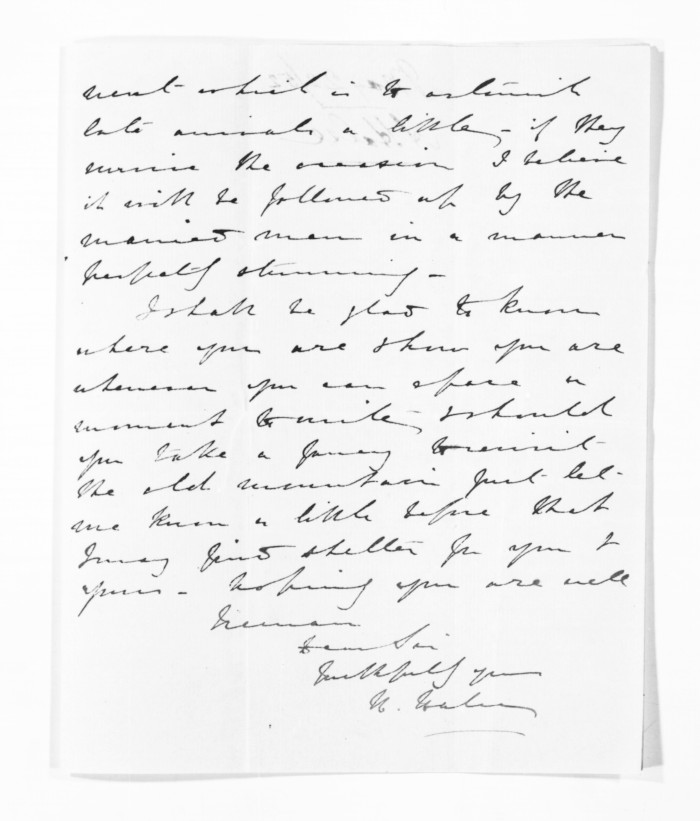 ment which is to astonish
late arrivals a little – if they
survive the occasion I believe
it will be followed up by the
married men in a manner
perfectly stunning –
I shall be glad to know
where you are & how you are
whenever you can spare a
moment to write, & should
you take a fancy to revisit
the old mountain just let
me know a little before that
I may find shelter for you &
yours – Hoping you are well
I remain
Dear Sir
Faithfully yours